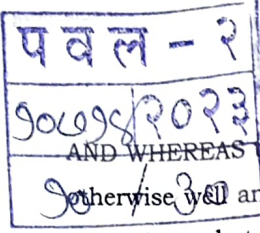 पवल - २
१०७१४/२०२३
AND WHEREAS
१०/३०
otherwise well an